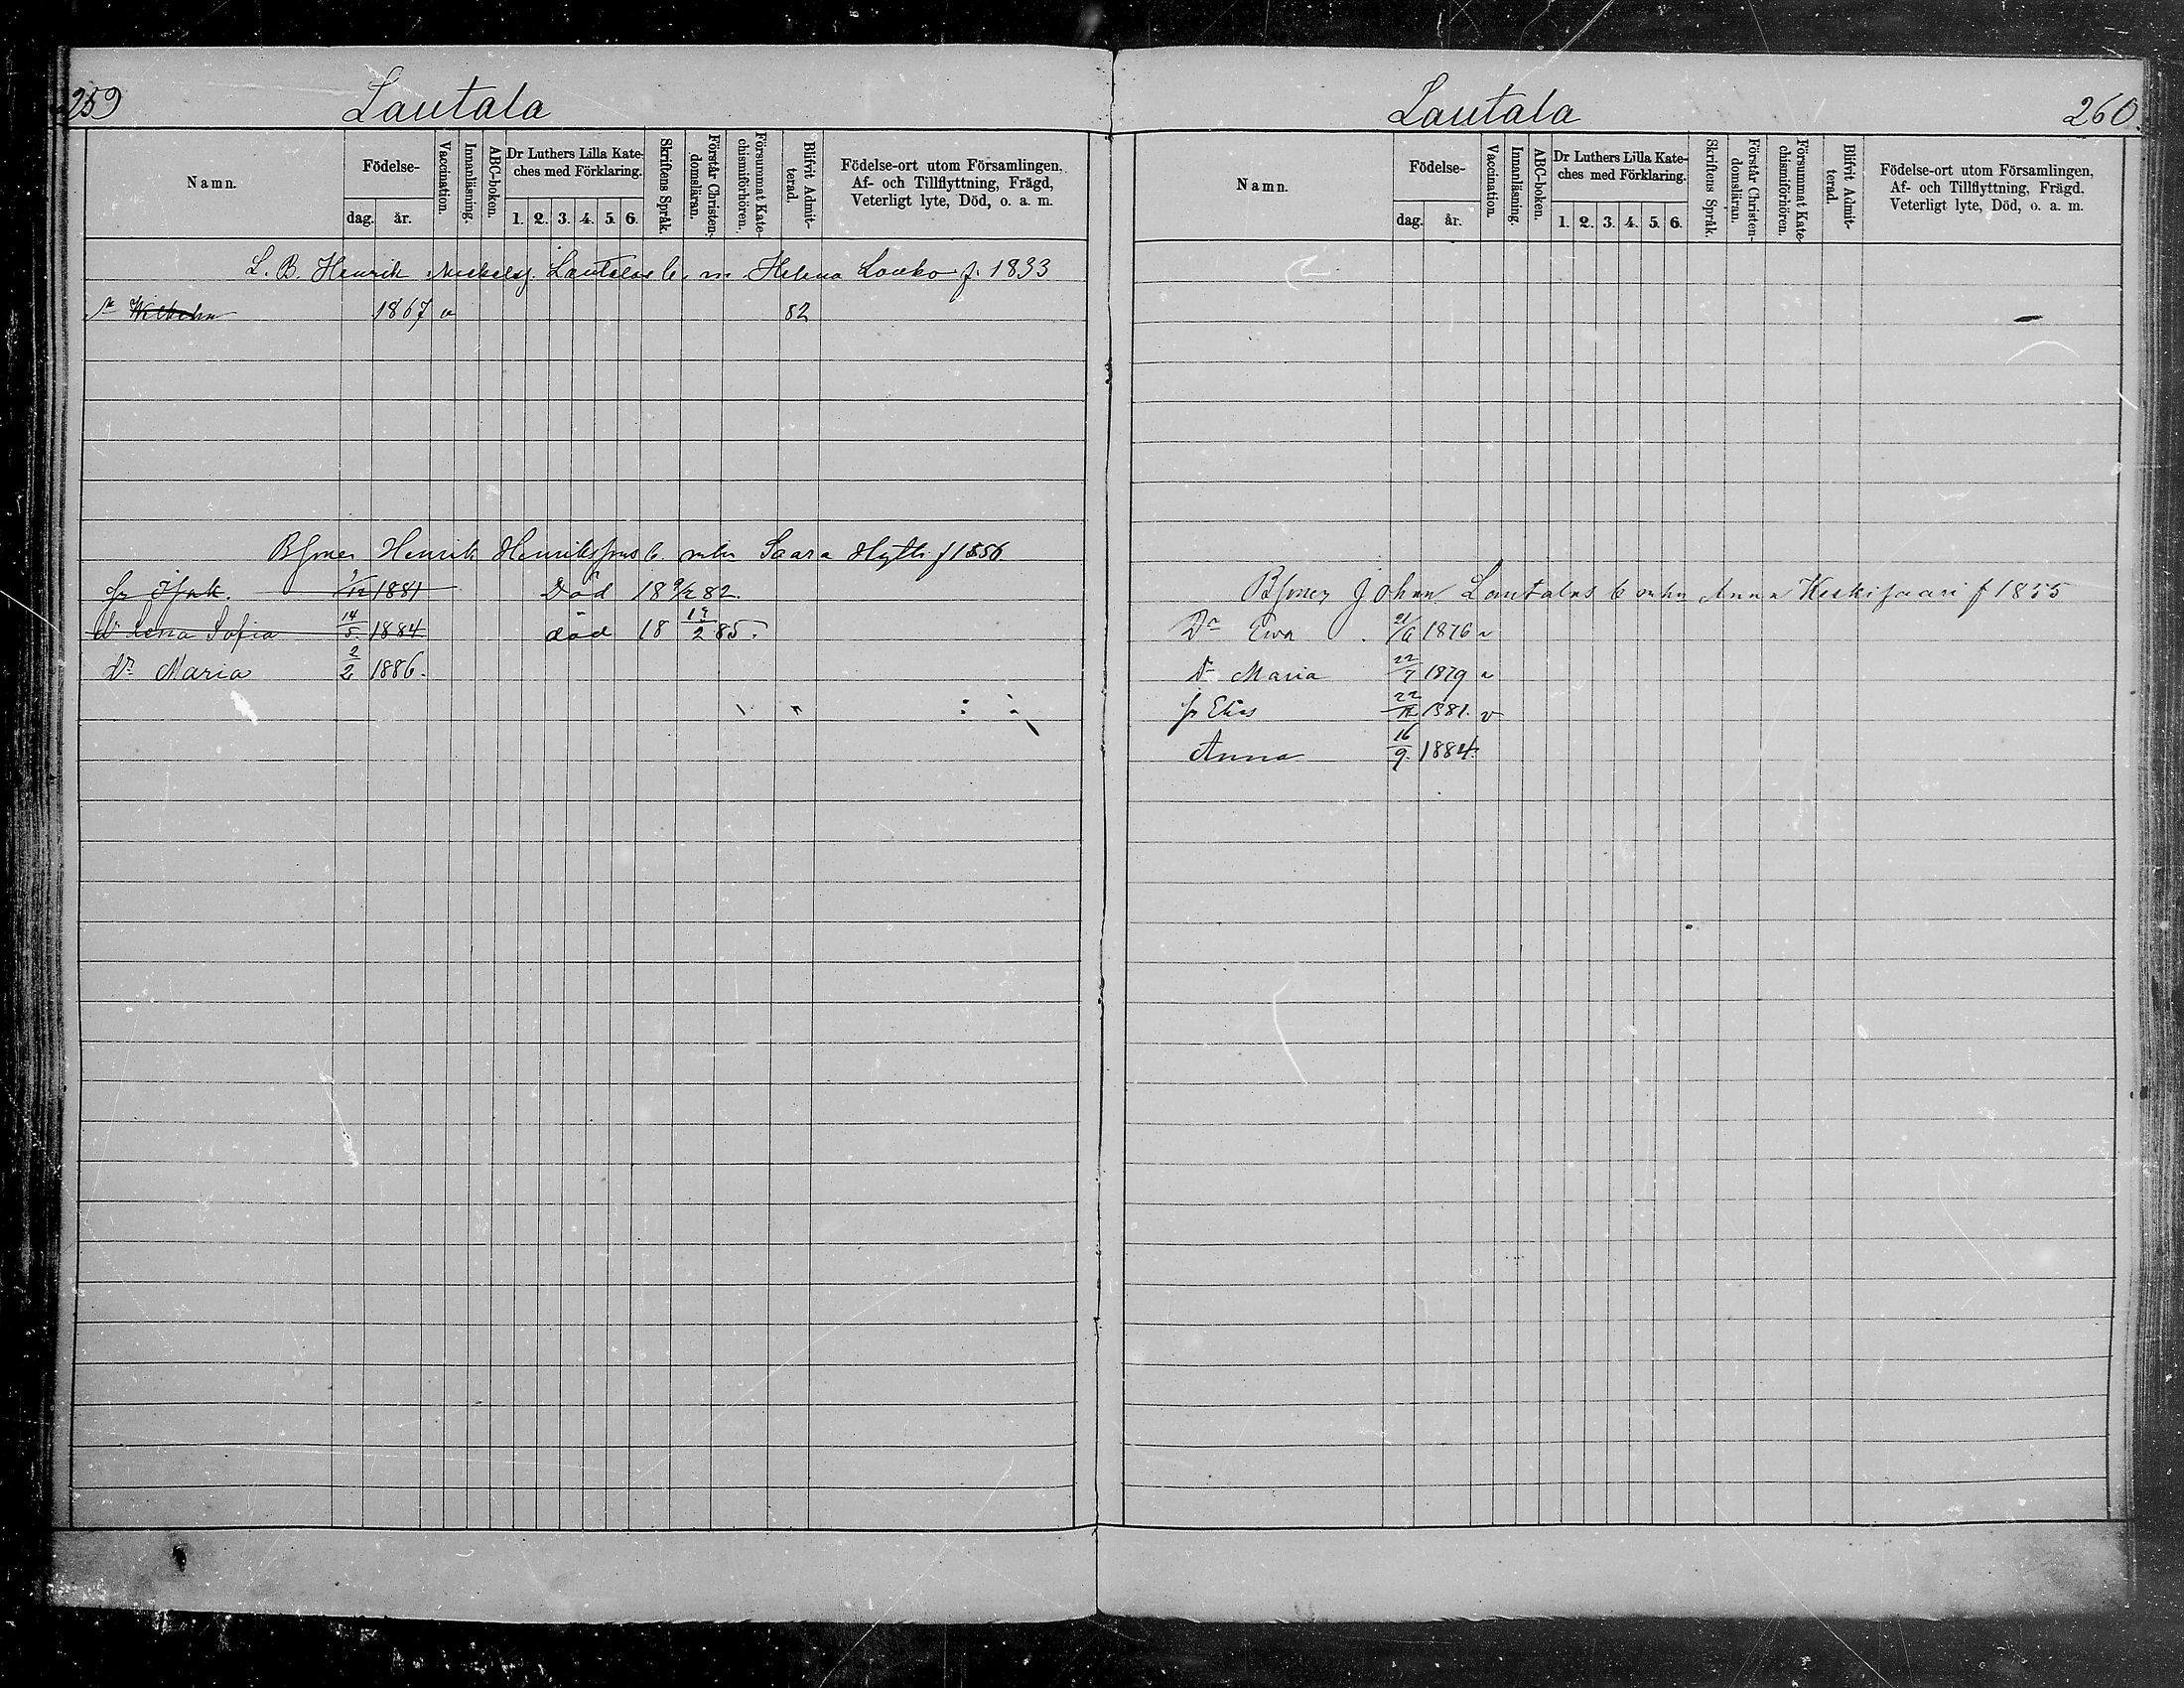 259
Lautala
Namn.
Födelse-
dag.
år.
Vaccination.
Innanläsning.
ABC-boken.
Dr Luthers Lilla Kate-
ches med Förklaring.
1. 2. 3. 4. 5. 6.
Skriftens Språk.
Förstår Christen-
domsläran.
Försummat Kate-
chismiförhören.
Blifvit Admit-
terad.
Födelse-ort utom Församlingen,
Af- och Tillflyttning, Frägd,
Veterligt lyte, Död, o. a. m.
L. B. Henrik Lautalas b. Helena Louko f. 1833
Wilhelm 1867 82
Henrik Henrikssons b. Saara f 1856
1/12 1881 Död 18 9/2 82.
Dr Lena Sofia 14/5. 1884 död 18 19/2 85.
Dr Maria 2/2 1886.
Lautala
260.
Namn.
Födelse-
dag.
år.
Vaccination.
Innanläsning.
ABC-boken.
Dr Luthers Lilla Kate-
ches med Förklaring.
1. 2. 3. 4. 5. 6.
Skriftens Språk.
Förstår Christen-
domsläran.
Försummat Kate-
chismiförhören.
Blifvit Admit-
terad.
Födelse-ort utom Församlingen,
Af- och Tillflyttning, Frägd.
Veterligt lyte, Död, o. a. m.
Johan Lautalas b Anna Keskisaari f 1855
Dr Ewa 1876 v
Dr Maria 22/7 1879 v
Elias 22/12 1881. v
Anna 16/9. 1884.